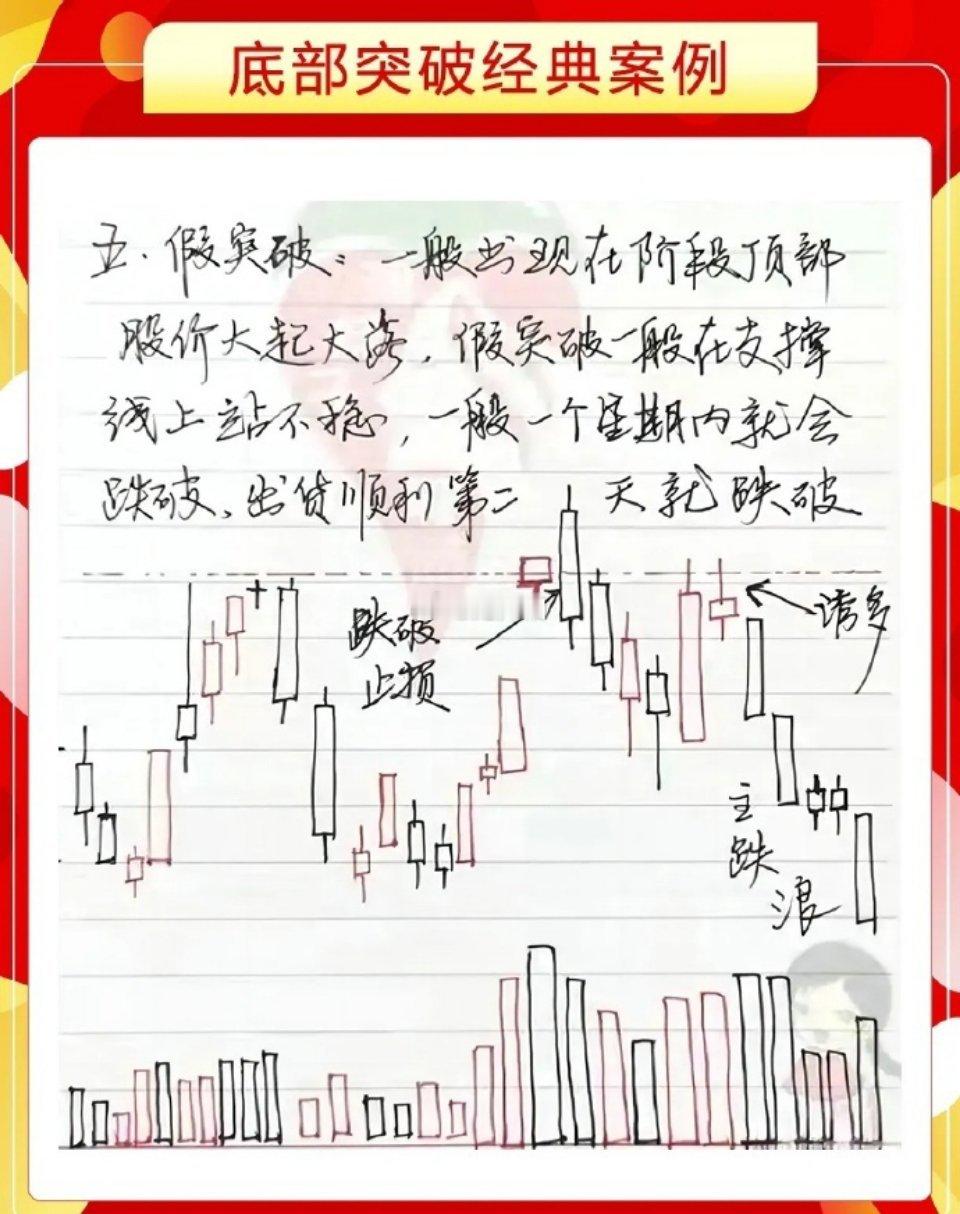 底部突破经典案例
五.假突破:一般出现在阶段顶部
股价大起大落,假突破一般在支撑
线上站不稳,一般一个星期内就会
跌破、出货顺利第二 天就跌破
跌破
止损
诱多
主
跌
浪